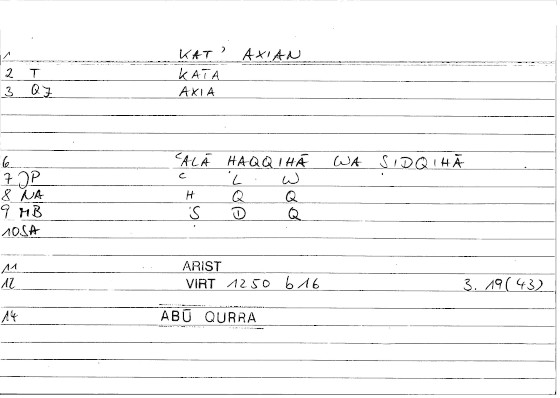 1 KAT' AXIAN
2 T KATA
3 QJ AXIA
6 ʿALĀ HAQQIHĀ WA SIDQIHĀ
7 JP ʿ L W
8 NA H Q Q
9 MB S D Q
10 SA
11 ARIST
12 VIRT 1250 b16 3. 19(43)
14 ABŪ QURRA